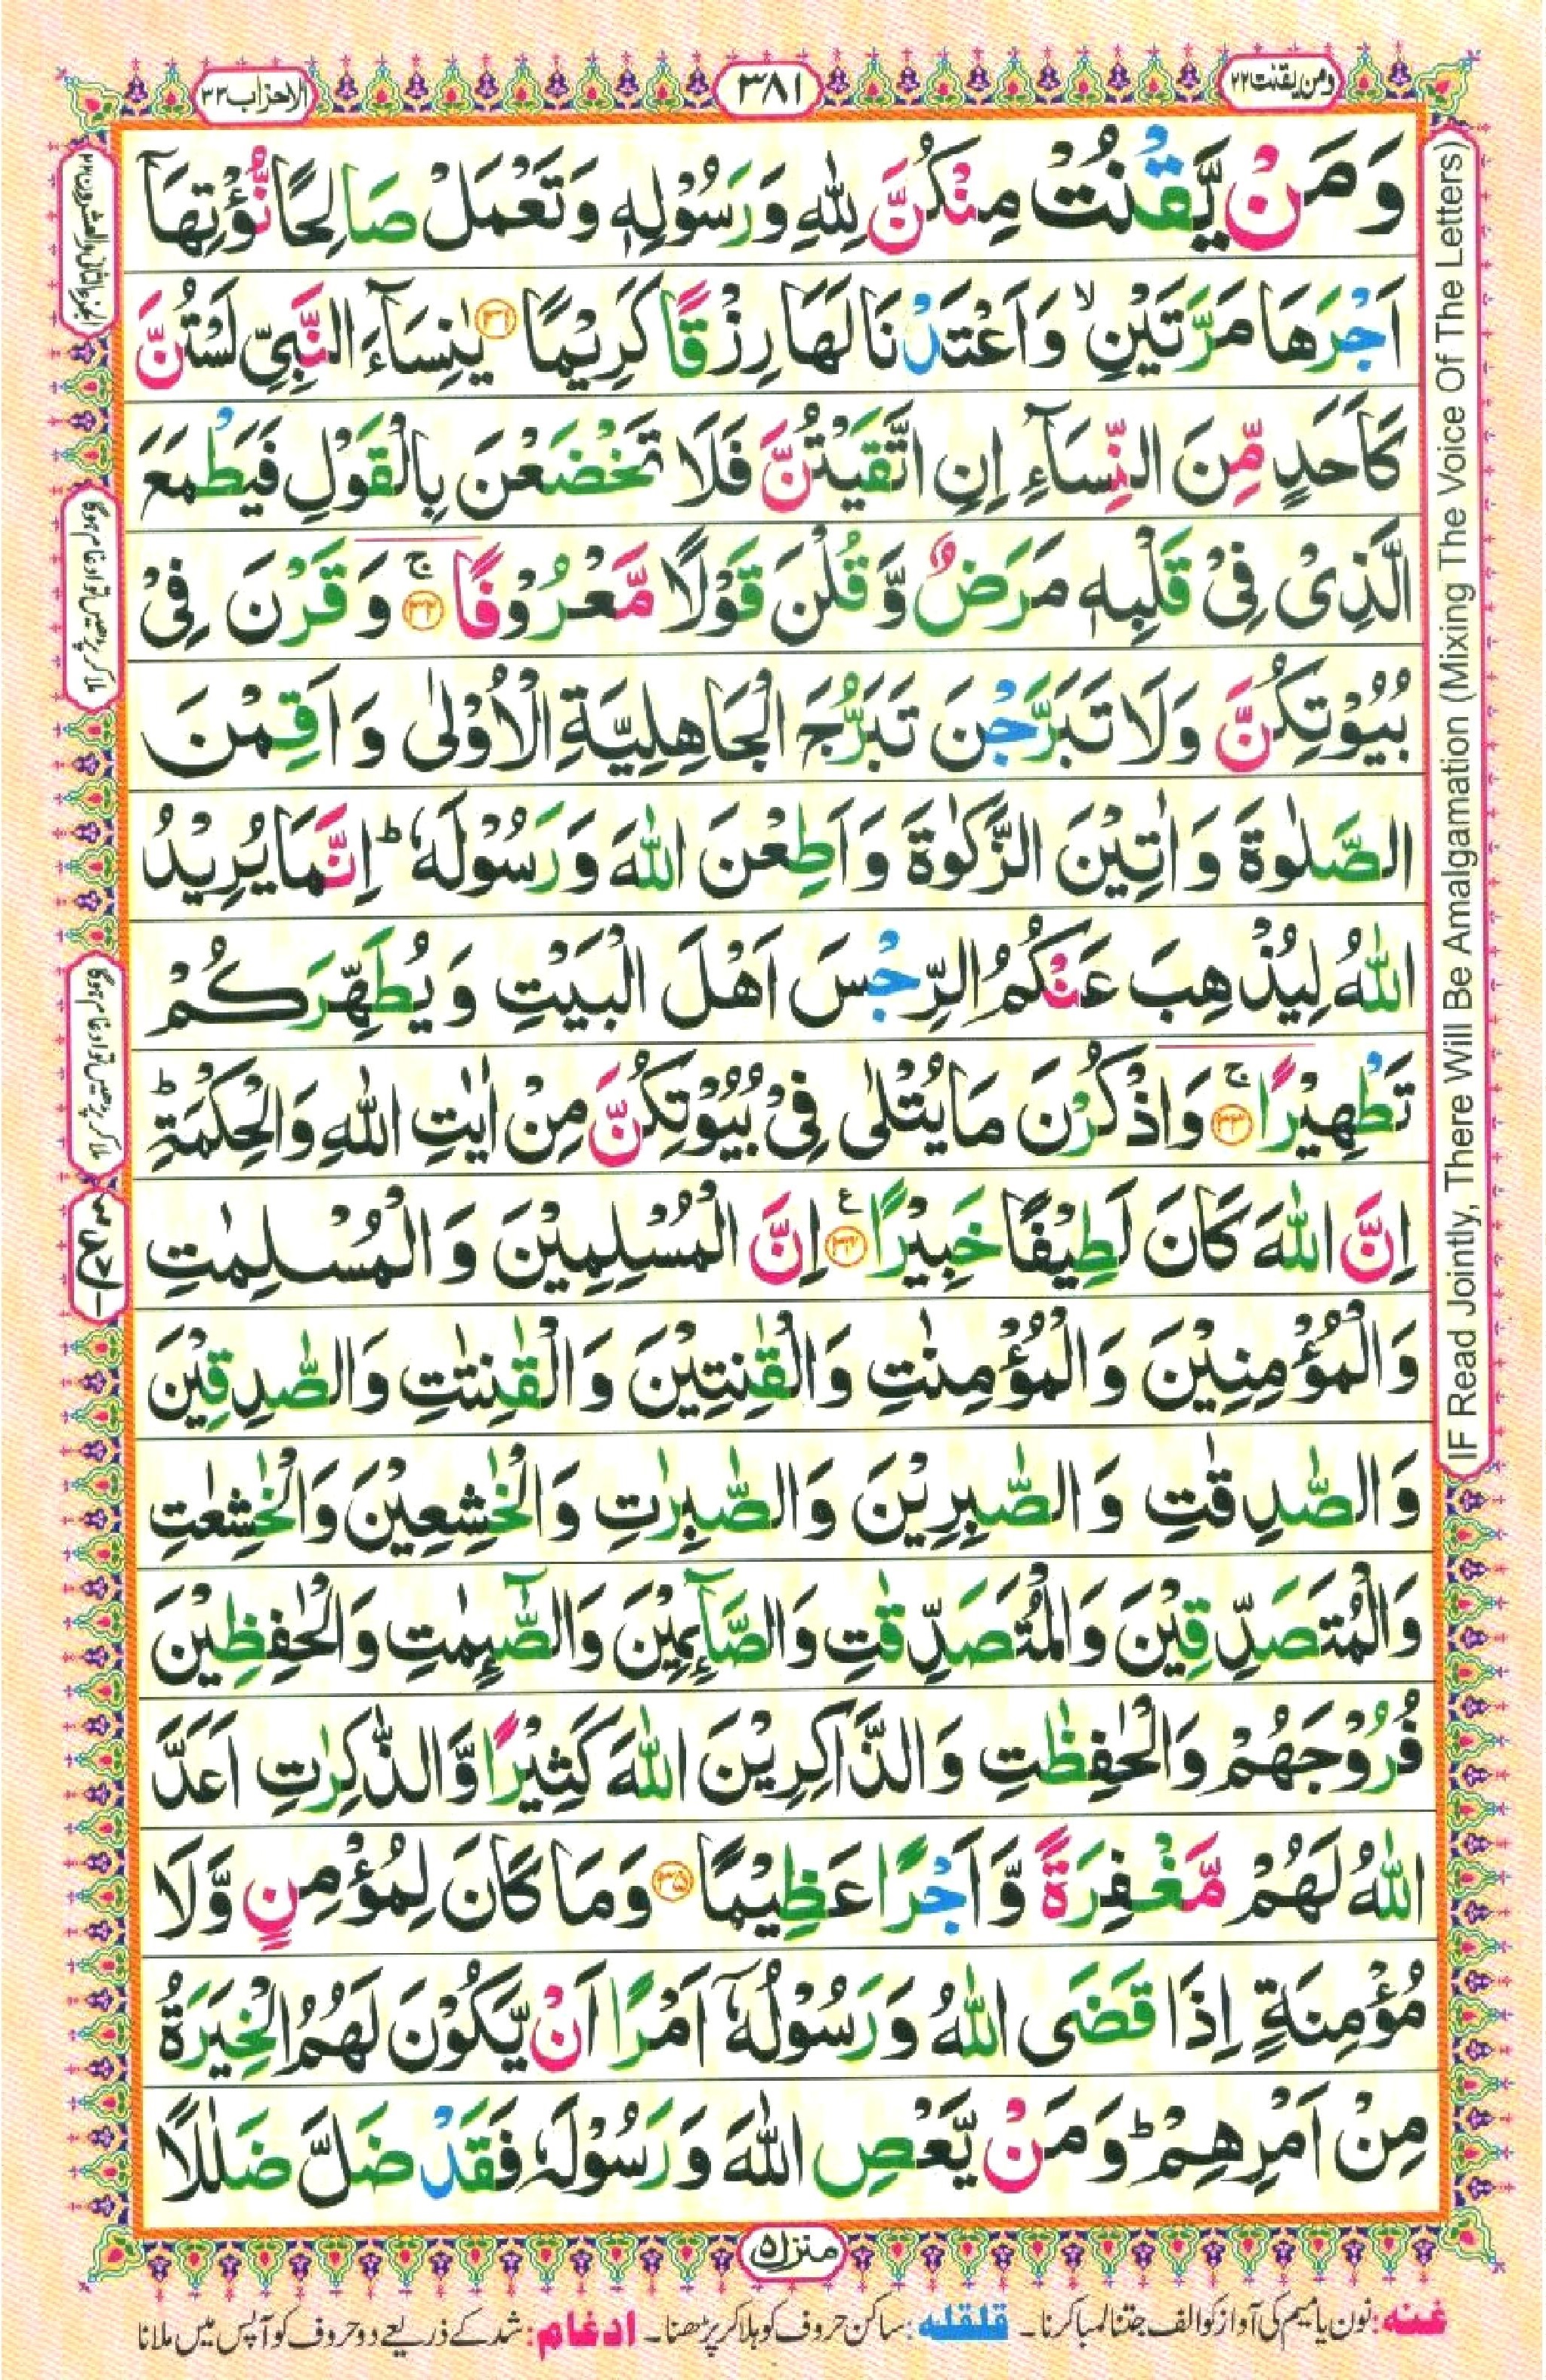 ومن يقنت ٢٢
٣٨١
الاحزاب ٣٣
وَمَنْ يَّقْنُتْ مِنْكُنَّ لِلّٰهِ وَرَسُوْلِهٖ وَتَعْمَلْ صَالِحًا نُّؤْتِهَاۤ
اَجْرَهَا مَرَّتَيْنِ ۙ وَاَعْتَدْنَا لَهَا رِزْقًا كَرِيْمًا ﴿۳۱﴾ يٰنِسَآءَ النَّبِىِّ لَسْتُنَّ
كَاَحَدٍ مِّنَ النِّسَآءِ اِنِ اتَّقَيْتُنَّ فَلَا تَخْضَعْنَ بِالْقَوْلِ فَيَطْمَعَ
الَّذِىْ فِىْ قَلْبِهٖ مَرَضٌ وَّقُلْنَ قَوْلًا مَّعْرُوْفًا ﴿۳۲﴾ ۚ وَقَرْنَ فِىْ
بُيُوْتِكُنَّ وَلَا تَبَرَّجْنَ تَبَرُّجَ الْجَاهِلِيَّةِ الْاُوْلٰى وَاَقِمْنَ
الصَّلٰوةَ وَاٰتِيْنَ الزَّكٰوةَ وَاَطِعْنَ اللّٰهَ وَرَسُوْلَهٗ ؕ اِنَّمَا يُرِيْدُ
اللّٰهُ لِيُذْهِبَ عَنْكُمُ الرِّجْسَ اَهْلَ الْبَيْتِ وَيُطَهِّرَكُمْ
تَطْهِيْرًا ﴿۳۳﴾ ۚ وَاذْكُرْنَ مَا يُتْلٰى فِىْ بُيُوْتِكُنَّ مِنْ اٰيٰتِ اللّٰهِ وَالْحِكْمَةِ ؕ
اِنَّ اللّٰهَ كَانَ لَطِيْفًا خَبِيْرًا ﴿۳۴﴾ ع اِنَّ الْمُسْلِمِيْنَ وَالْمُسْلِمٰتِ
وَالْمُؤْمِنِيْنَ وَالْمُؤْمِنٰتِ وَالْقٰنِتِيْنَ وَالْقٰنِتٰتِ وَالصّٰدِقِيْنَ
وَالصّٰدِقٰتِ وَالصّٰبِرِيْنَ وَالصّٰبِرٰتِ وَالْخٰشِعِيْنَ وَالْخٰشِعٰتِ
وَالْمُتَصَدِّقِيْنَ وَالْمُتَصَدِّقٰتِ وَالصَّآئِمِيْنَ وَالصّٰٓئِمٰتِ وَالْحٰفِظِيْنَ
فُرُوْجَهُمْ وَالْحٰفِظٰتِ وَالذَّاكِرِيْنَ اللّٰهَ كَثِيْرًا وَّالذّٰكِرٰتِ اَعَدَّ
اللّٰهُ لَهُمْ مَّغْفِرَةً وَّاَجْرًا عَظِيْمًا ﴿۳۵﴾ وَمَا كَانَ لِمُؤْمِنٍ وَّلَا
مُؤْمِنَةٍ اِذَا قَضَى اللّٰهُ وَرَسُوْلُهٗۤ اَمْرًا اَنْ يَّكُوْنَ لَهُمُ الْخِيَرَةُ
مِنْ اَمْرِهِمْ ؕ وَمَنْ يَّعْصِ اللّٰهَ وَرَسُوْلَهٗ فَقَدْ ضَلَّ ضَلٰلًا
IF Read Jointly, There Will Be Amalgamation (Mixing The Voice Of The Letters)
ملا کر پڑھیں تو ادغام ہوگا
ملا کر پڑھیں تو ادغام ہوگا
منزل ۵
غنه: نون یا میم کی آواز کو الف جتنا لمبا کرنا۔ قلقله: ساکن حروف کو ہلا کر پڑھنا۔ ادغام: شد کے ذریعے دو حروف کو آپس میں ملانا